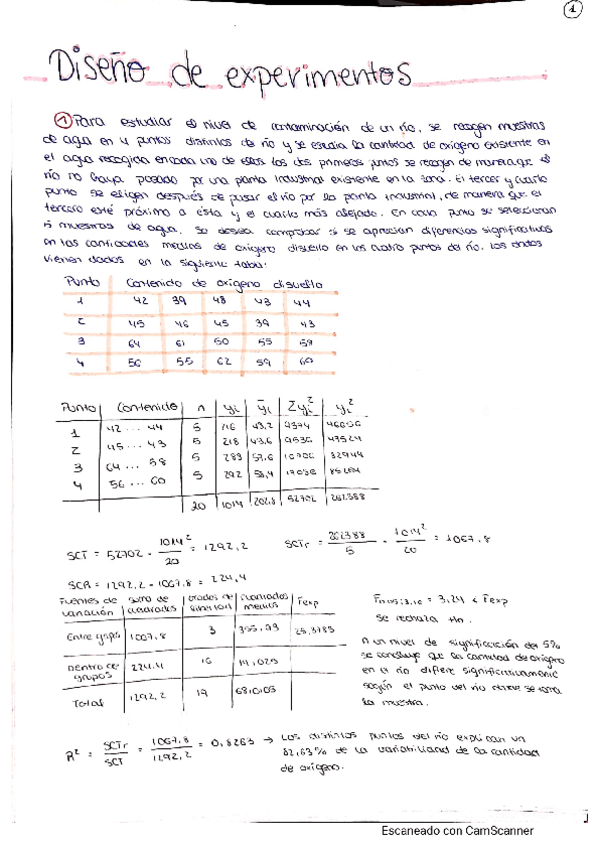 1
Diseño de experimentos
1 Para estudiar el nivel de contaminación de un río, se recogen muestras
de agua en 4 puntos distintos de río y se estudia la cantidad de oxígeno existente en
el agua recogida en cada uno de ellos. Los dos primeros puntos se recogen de manera que el
río no haya pasado por una planta industrial existente en la zona. El tercer y cuarto
punto se eligen después de pasar el río por la planta industrial, de manera que el
tercero esté próximo a ésta y el cuarto más alejado. En cada punto se seleccionan
5 muestras de agua. Se desea comprobar si se aprecian diferencias significativas
en las cantidades medias de oxígeno disuelto en los cuatro puntos del río. Los datos
vienen dados en la siguiente tabla:
Punto Contenido de oxígeno disuelto
1 42 39 48 43 44
2 45 46 45 39 43
3 64 61 50 55 59
4 56 55 62 59 60
Punto Contenido n yi ȳi Σyi² yi²
1 42 ... 44 5 216 43,2 9374 46656
2 45 ... 43 5 218 43,6 9536 47524
3 64 ... 58 5
4 56 ... 60 5 292 58,4
20 1014 202,8 52702 262388
SCT = 52702 - 1014²/20 = 1292,2 SCTr = 262388/5 - 1014²/20 = 1067,8
SCR = 1292,2 - 1067,8 = 224,4
Fuentes de variación suma de cuadrados grados de libertad cuadrados medios Fexp
Entre grupos 1067,8 3 355,93 25,3785
Dentro de grupos 224,4 16 14,025
Total 1292,2 19
= 3,24 < Fexp
Se rechaza H0.
A un nivel de significación del 5%
se concluye que la cantidad de oxígeno
en el río difiere significativamente
según el punto del río donde se toma
la muestra.
R² = SCTr/SCT = 1067,8/1292,2 = 0,8263 → Los distintos puntos del río explican un
82,63% de la variabilidad de la cantidad
de oxígeno.
Escaneado con CamScanner